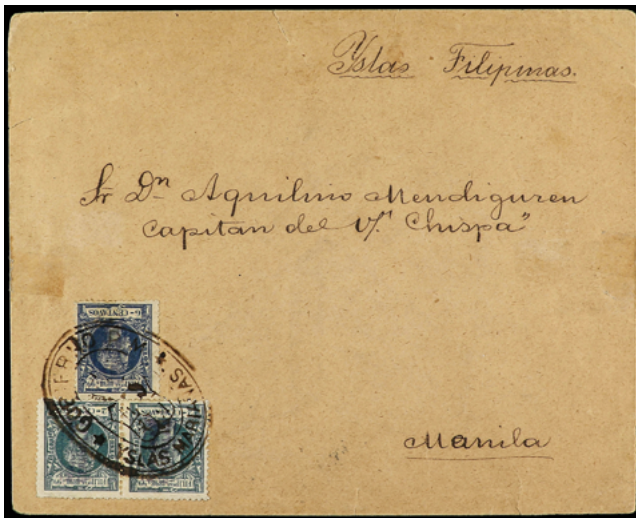 Yslas Filipinas.
Sr Dn Aquilino Mendiguren
Capitan del V. "Chispa"
6 CENTAVOS
YSLAS MARIANAS
Manila